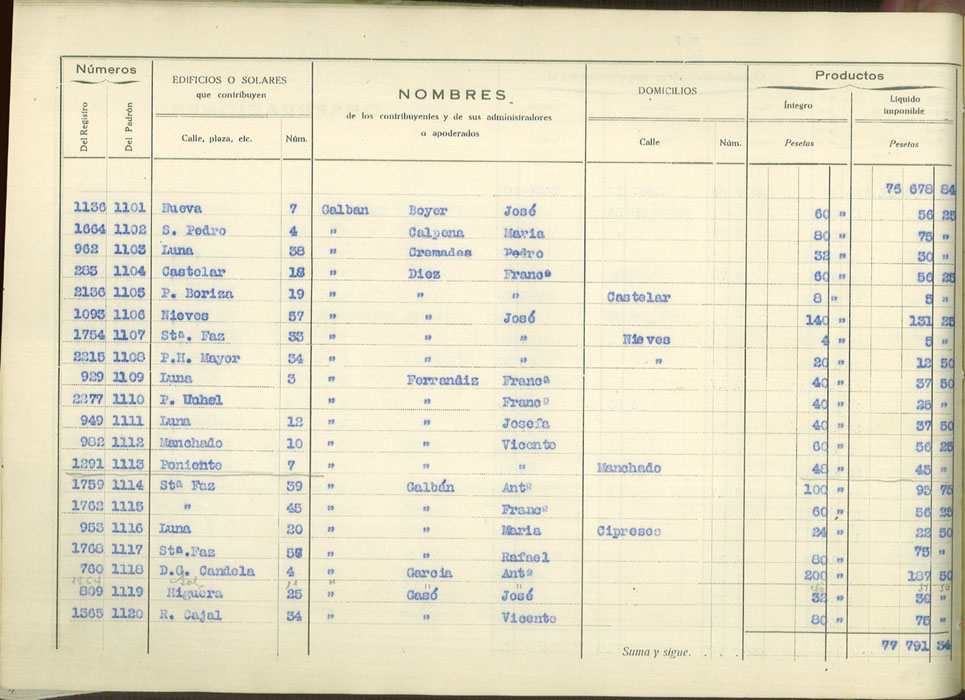 Números EDIFICIOS O SOLARES que contribuyen NOMBRES de los contribuyentes y de sus administradores o apoderados DOMICILIOS Productos
Del Registro Del Padrón Calle, plaza, etc. Núm. Calle Núm. Íntegro Pesetas Líquido imponible Pesetas
76 678 84
1136 1101 Nueva 7 Galban Boyer José 60 " 56 25
1664 1102 S. Pedro 4 " Calpena Maria 80 " 75 "
962 1103 Luna 38 " Cremades Pedro 32 " 30 "
283 1104 Castelar 18 " Diez Francº 60 " 56 25
2136 1105 P. Boriza 19 " " " Castelar 8 " 5 "
1093 1106 Nieves 57 " " José 140 " 131 25
1754 1107 Stª. Faz 33 " " " Nieves 4 " 5 "
2215 1108 P.H. Mayor 34 " " " " 20 " 12 50
929 1109 Luna 3 " Ferrandiz Francª 40 " 37 50
2277 1110 P. " " Francº 40 " 25 "
949 1111 Luna 12 " " Josefa 40 " 37 50
982 1112 Manchado 10 " " Vicente 60 " 56 25
1291 1113 Poniente 7 " " " Manchado 48 " 45 "
1759 1114 Stª Faz 39 " Galbán Antº 100 " 93 75
1762 1115 " 45 " " Francº 60 " 56 25
953 1116 Luna 20 " " Maria Cipreses 24 " 22 50
1768 1117 Stª.Faz " " Rafael 80 " 75 "
760 1118 D.G. Candela 4 " Garcia Antº 200 " 187 50
Sol
809 1119 Higuera 25 " Gasó José 32 " 30 "
1365 1120 R. Cajal 34 " " Vicente 80 " 75 "
Suma y sigue. . . . 77 791 34